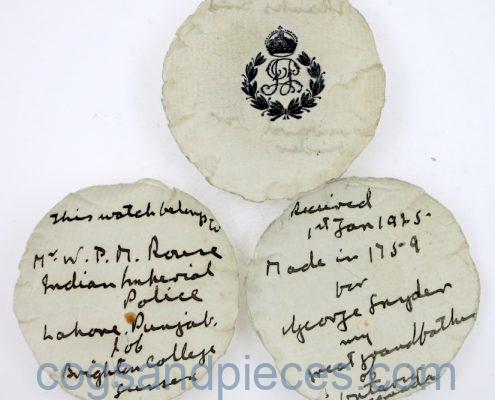 This watch belongs to
Mr W. P. M. Rouse
Indian Imperial
Police
Lahore. Punjab.
Brighton College
Sussex
Received
1st Jan 1925.
Made in 1759
George Snyder
my
great grandfather
of
cogsandpieces.com